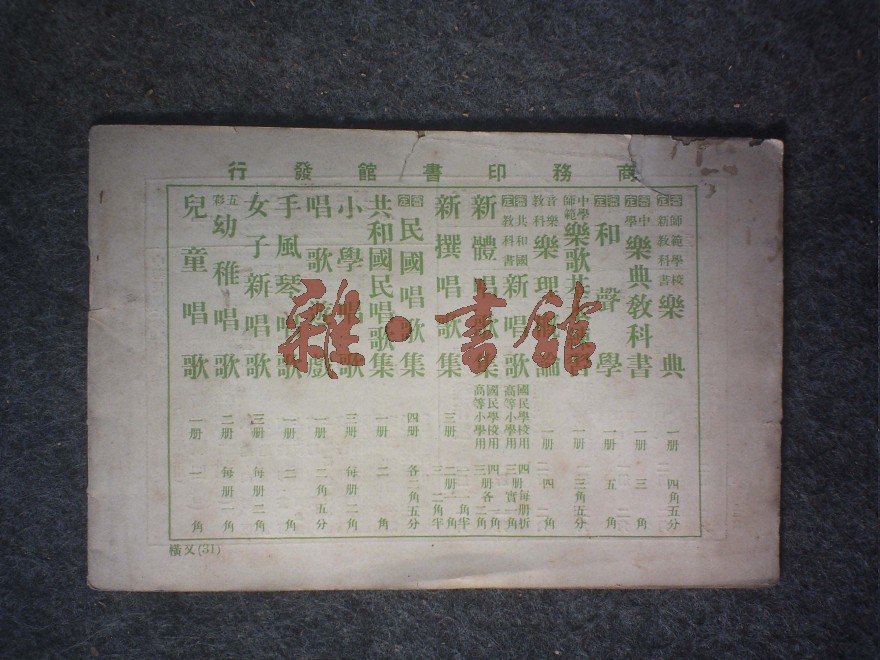 商務印書館發行
審定 師範學校新教科書 樂典 一册 四角五分
審定 中學 樂典敎科書 一册 三角
審定 和聲學 一册 五角
中學師範 樂歌 一册 三角五分
音樂敎科 樂理 論 一册 四角
審定 共和國敎科書 新唱歌 國民學校用 四册 高等小學用 三册
新體唱歌集 國民學校用 四册 高等小學用 三册
新撰唱歌集 三册
審定 民國唱歌集 四册 各二角五分
共和國民唱歌集 一册 二角
小學唱歌 三册 每册二角
唱歌遊戲 一册 二角五分
手風琴唱歌 一册 二角
女子新唱歌 三册 每册二角
五彩 幼稚唱歌 二册 每册一角
兒童唱歌 一册 一角
橫又(31)
雜·書館